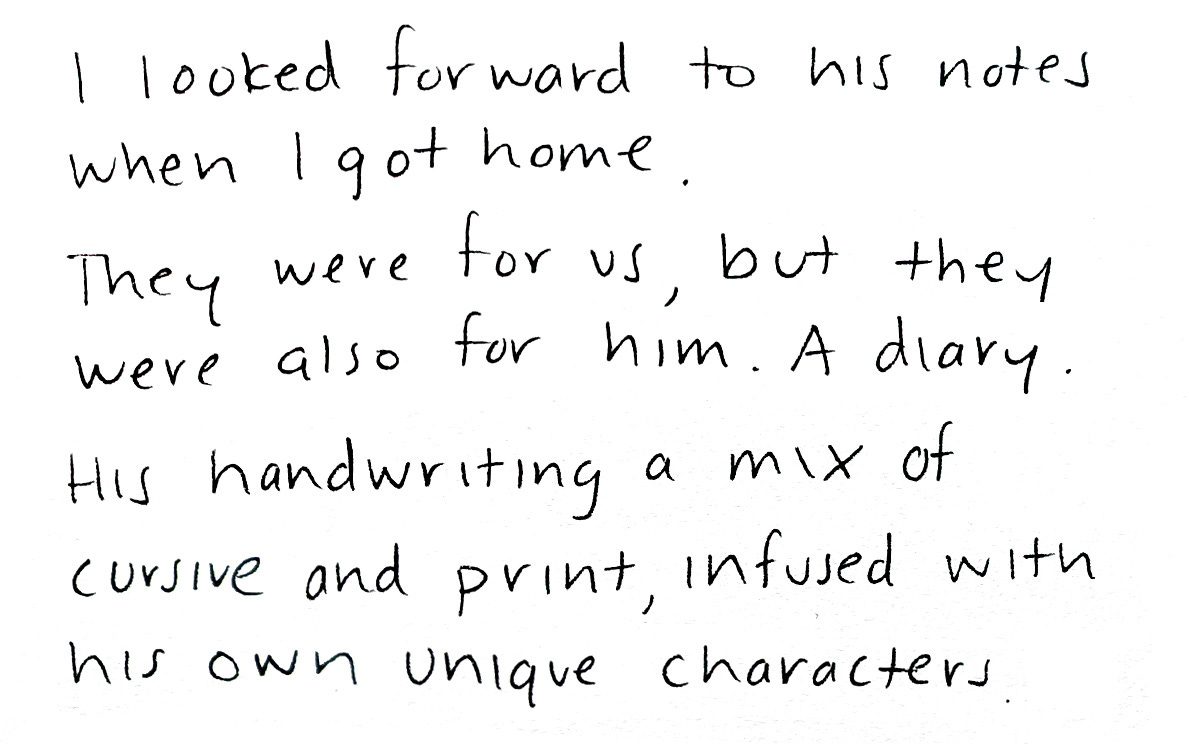 I looked forward to his notes
when I got home.
They were for us, but they
were also for him. A diary.
His handwriting a mix of
cursive and print, infused with
his own unique characters.